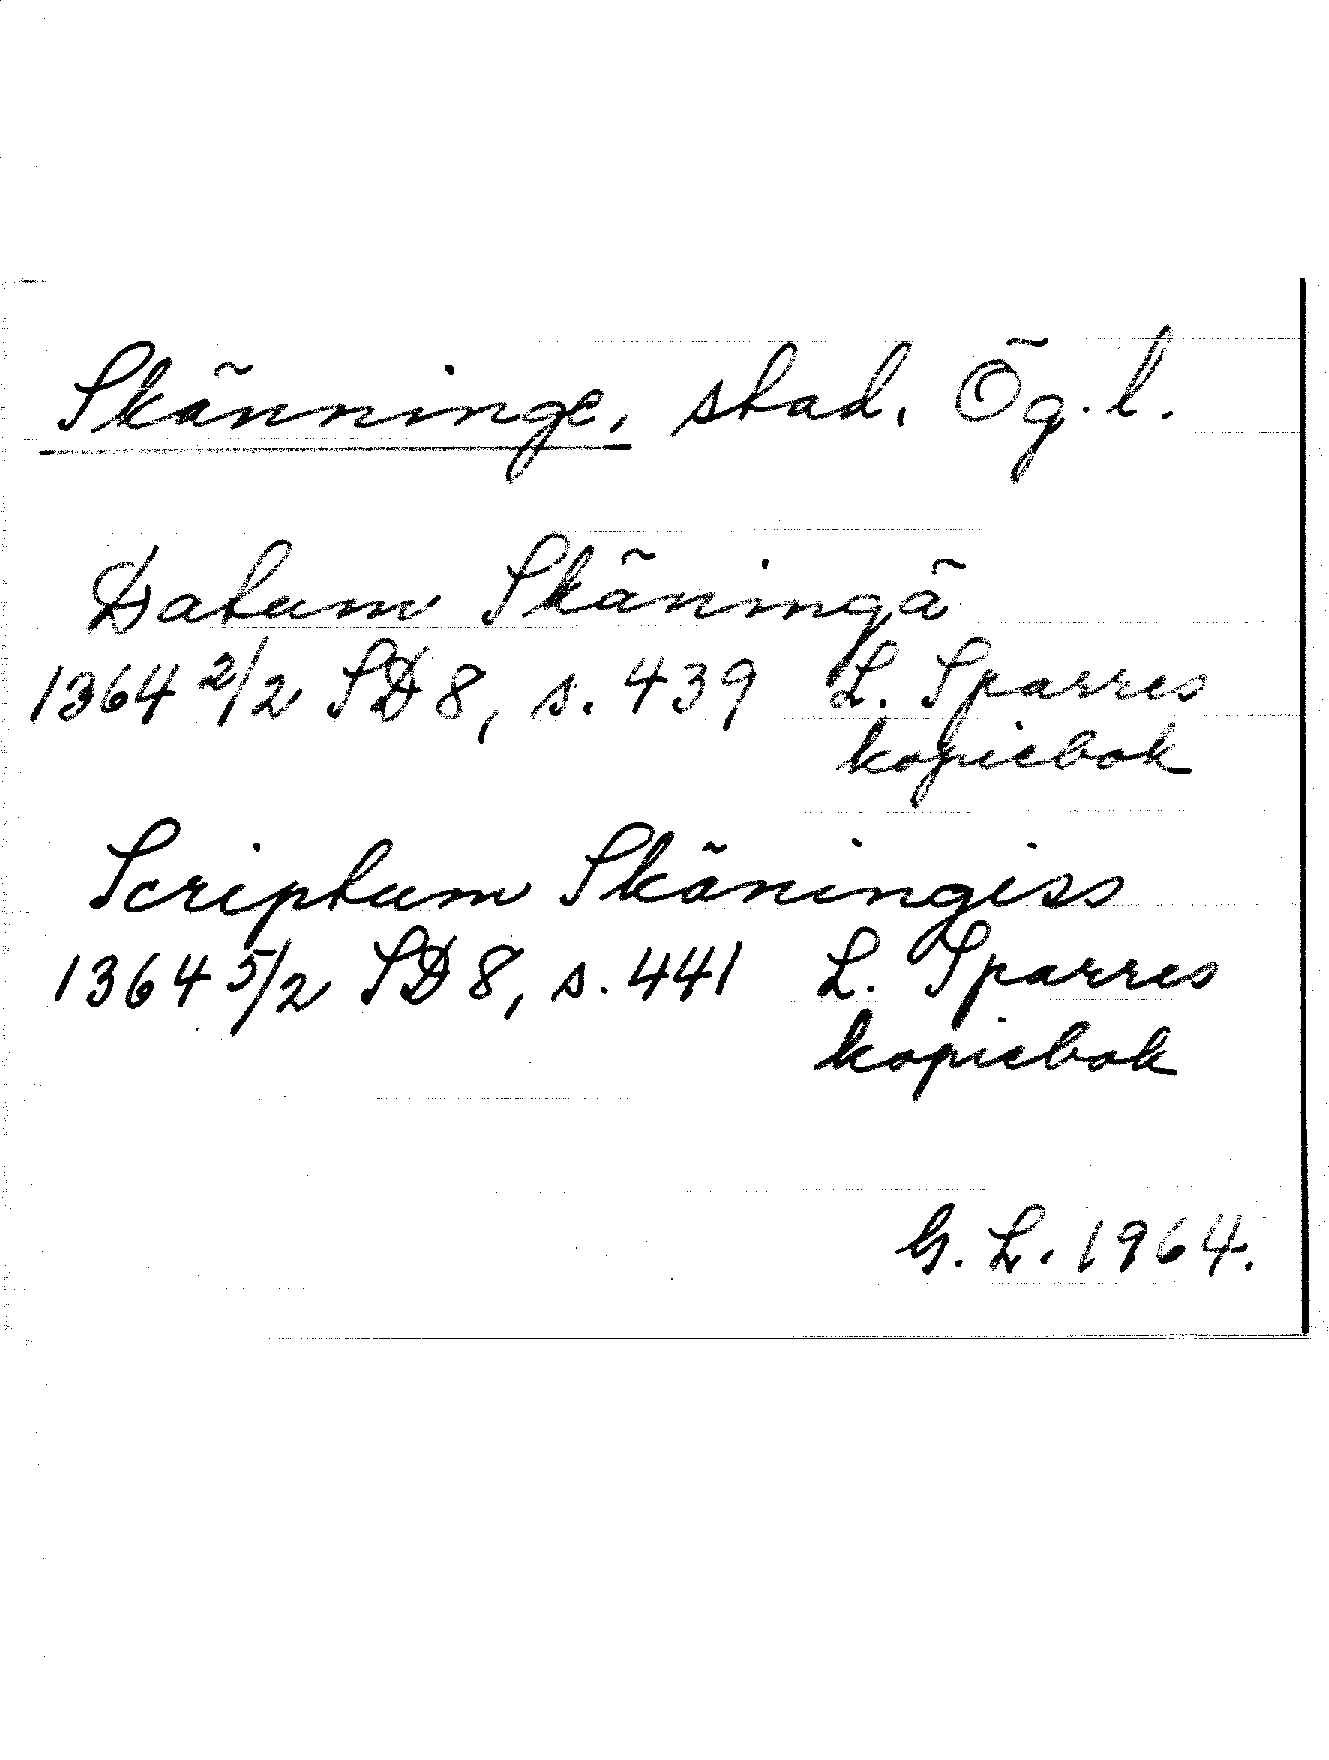 Skänninge, stad. Ög. l.
Datum Skäningä
1364 2/2 SD 8, s. 439 L. Sparres
kopiebok
Scriptum Skäningiss
1364 5/2 SD 8, s. 441 L. Sparres
kopiebok
G. L. 1964.